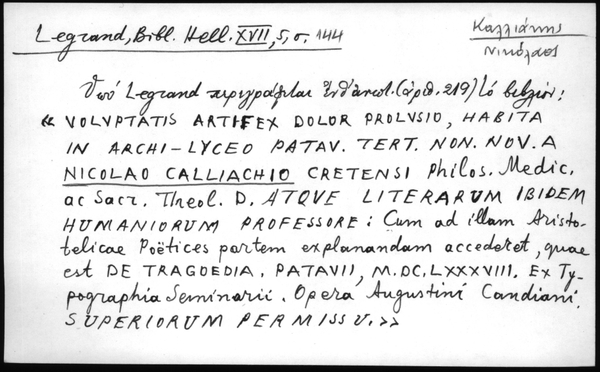 Legrand, Bibl. Hell. XVII, 5, σ. 144
Καλλιάκης
Νικόλαος
Ὑπό Legrand περιγράφεται ἐνθ' ἀνωτ. (ἀριθ. 219) τό βιβλίον:
« VOLVPTATIS ARTIFEX DOLOR PROLVSIO, HABITA
IN ARCHI-LYCEO PATAV. TERT. NON. NOV. A
NICOLAO CALLIACHIO CRETENSI Philos. Medic.
ac Sacr. Theol. D. ATQVE LITERARUM IBIDEM
HUMANIORUM PROFESSORE: Cum ad illam Aristo-
telicae Poëtices partem explanandam accederet, quae
est DE TRAGOEDIA. PATAVII, M.DC.LXXXVIII. Ex Ty-
pographia Seminarii. Opera Augustini Candiani.
SUPERIORUM PERMISSU.»